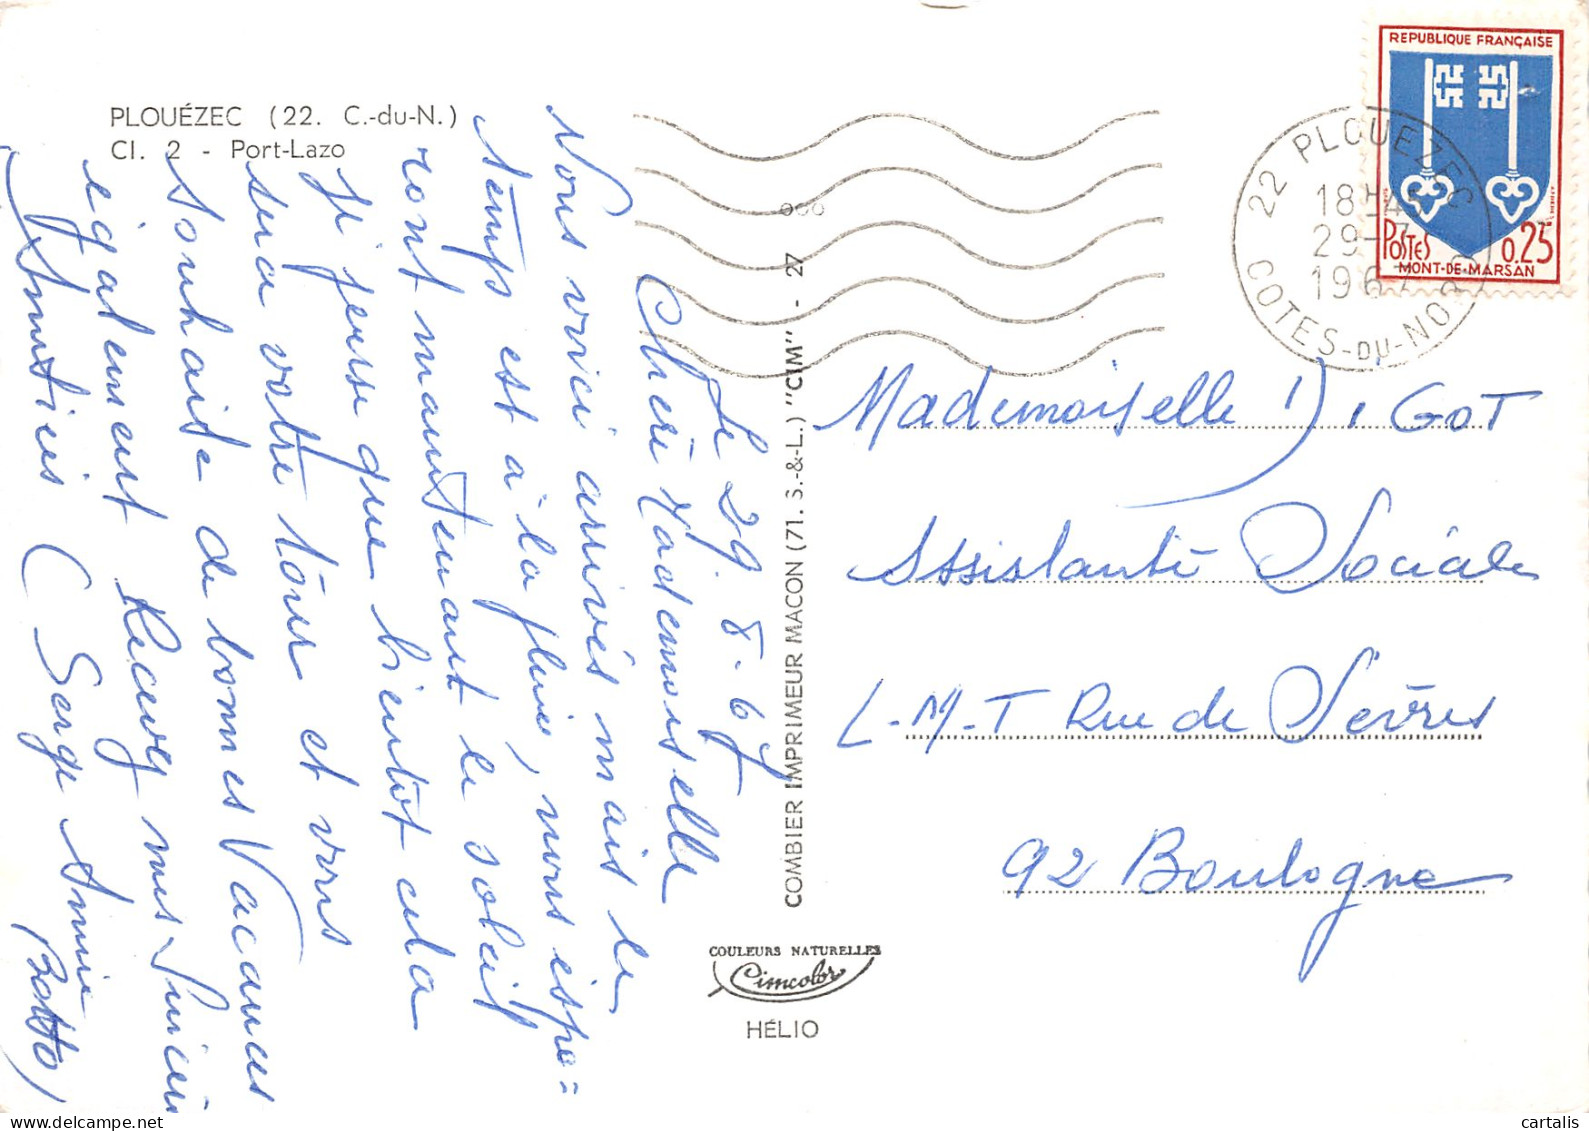 PLOUÉZEC (22. C.-du-N.)
Cl. 2 - Port-Lazo
REPUBLIQUE FRANÇAISE
POSTES 0.25
MONT-DE-MARSAN
22 PLOUEZEC
18H45
29-7
1967
COTES-DU-NORD
Le 29.8.67
Chère Mademoiselle
Nous voici arrivés mais le
temps est à la pluie, nous espe=
ront maintenant le soleil
Je pense que bientot cela
sera votre tour et vous
souhaite de bonnes Vacances
egalement Recevez mes sincères
Amitiés (Serge Annie
Botto)
Mademoiselle DIGOT
Assistante Sociale
L-M-T Rue de Sèvres
92 Boulogne
COMBIER IMPRIMEUR MACON (71. S.-&-L.) "CIM" - 27
COULEURS NATURELLES
Cimcolor
HÉLIO
cartalis